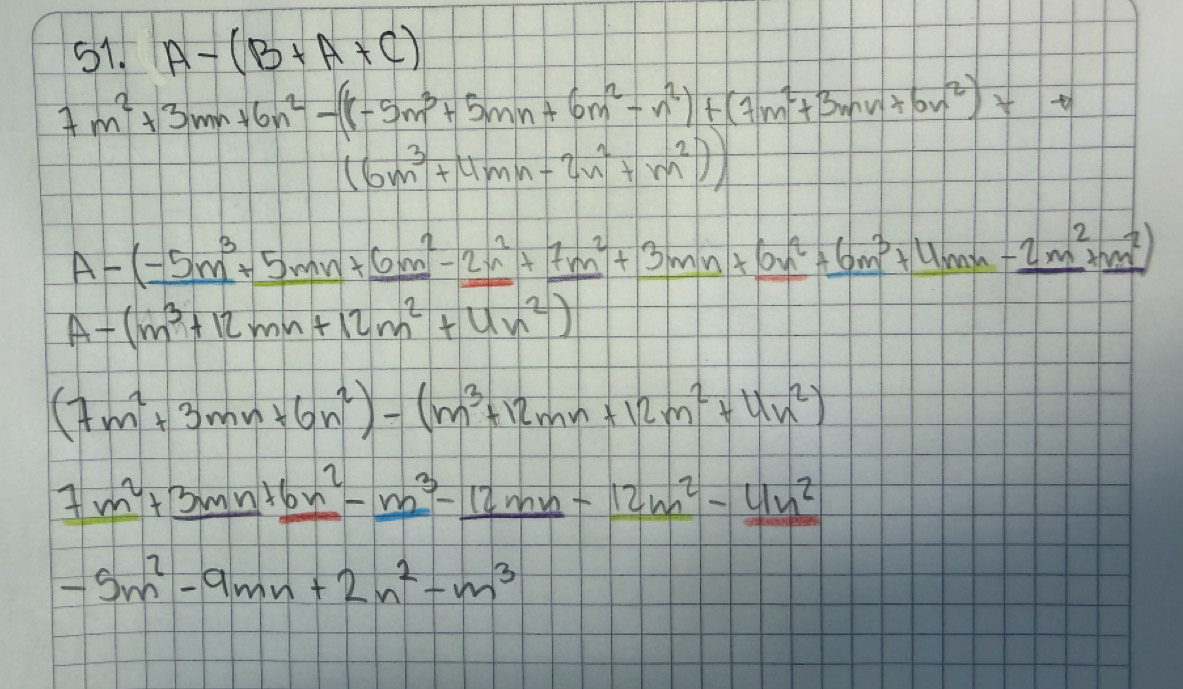 51. A-(B+A+C)
7m²+3mn+6n²-((-5m³+5mn+6m²-n²)+(7m²+3mn+6n²)+ →
(6m³+4mn-2n²+m²))
A-(-5m³+5mn+6m²-2n²+7m²+3mn+6n²+6m³+4mn-2m²+m²)
A-(m³+12mn+12m²+4n²)
(7m²+3mn+6n²)-(m³+12mn+12m²+4n²)
7m²+3mn+6n²-m³-12mn-12m²-4n²
-5m²-9mn+2n²-m³